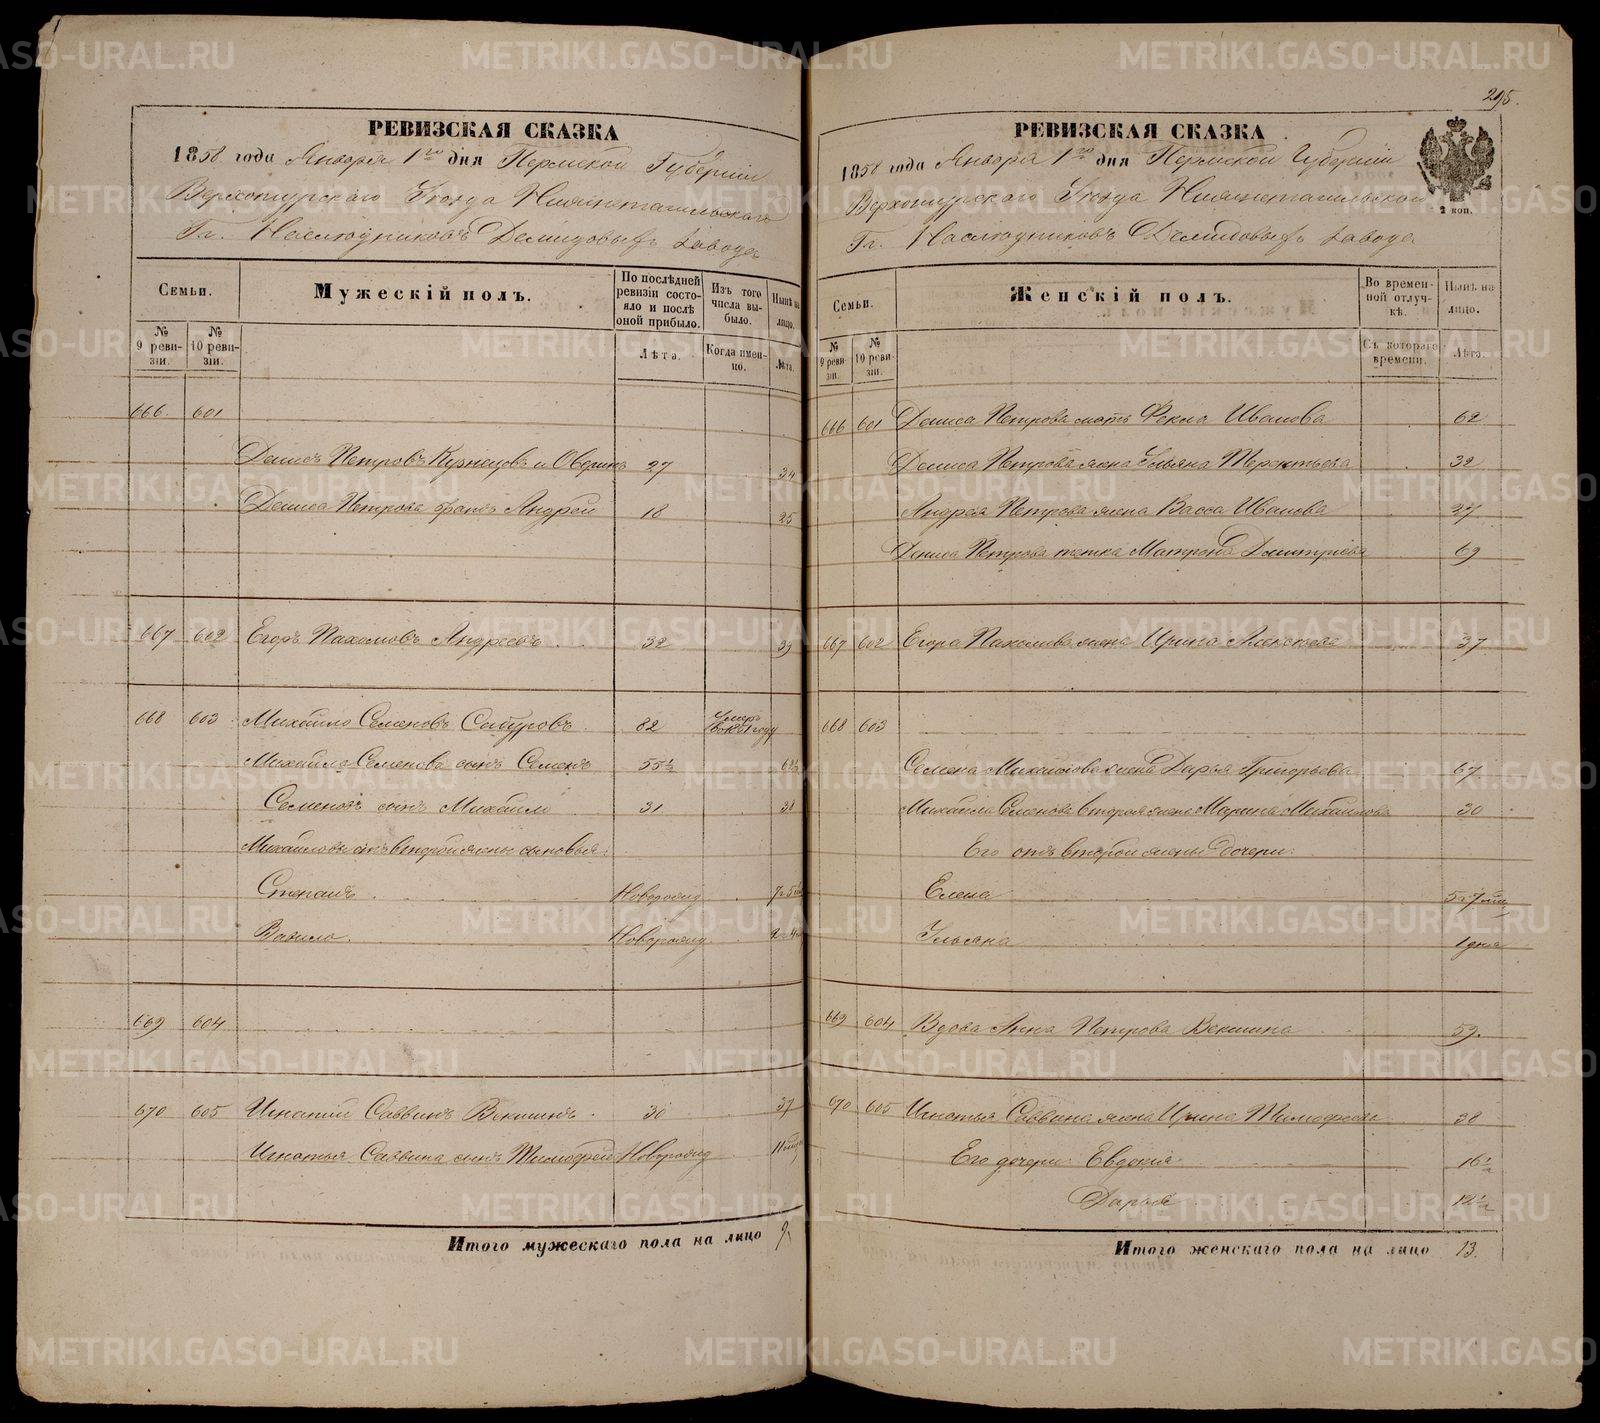 295.
РЕВИЗСКАЯ СКАЗКА
1858 года Января 1го дня Пермской Губернии
Верхотурского Уезда Нижнетагильскаго
Гг. Наследниковъ Демидовыхъ Завода
Семьи.
Мужескій полъ.
По послѣдней ревизіи состояло и послѣ оной прибыло.
Изъ того числа выбыло.
Нынѣ на лицо.
№ 9 ревизіи.
№ 10 ревизіи.
Лѣта.
Когда именно.
Лѣта.
666. 601
Денисъ Петровъ Кузнецовъ и Оверинъ 27 34
Дениса Петрова братъ Андрей 18 25
667 602 Егоръ Пахомовъ Андреевъ 32 39
668 603 Михайло Семеновъ Сабуровъ 82 Умеръ въ 1851 году
Михайла Семенова сынъ Семенъ 55½ 62½
Семеновъ сынъ Михайло 31 38
Михайловы отъ второй жены сыновья:
Степанъ Новорожд
Вавило. Новорожд.
669 604
670 605 Игнатій Саввинъ Векшинъ 30 37
Игнатья Саввина сынъ Тимофей Новорожд 11 мѣс
Итого мужескаго пола на лицо 9.
РЕВИЗСКАЯ СКАЗКА
1858 года Января 1го дня Пермской Губерніи
Верхотурскаго Уезда Нижнетагильскаго
Гг. Наследниковъ Демидовыхъ Завода
2 коп.
Семьи.
Женскій полъ.
Во временной отлучкѣ.
Нынѣ на лицо.
№ 9 ревизіи.
№ 10 ревизіи.
Съ котораго времени.
Лѣта.
666 601 Дениса Петрова мать Фекла Иванова 62
Дениса Петрова жена Ульяна Терентьева 32
Андрея Петрова жена Васса Иванова 27
Дениса Петрова тетка Матрона Дмитріева 69
667 602 Егора Пахомова жена Ирина Алексѣева 37
668 603
Семена Михайлова жена Дарья Григорьева 67
Михайла Семенова вторая жена Марина Михайлова 30
Его отъ второй жены дочери:
Елена 5 и 7 мѣс
Ульяна 1 дня
669 604 Вдова Анна Петрова Векшина 59.
670 605 Игнатья Саввина жена Ирина Тимофеева 38
Его дочери: Евдокія 16½
Дарья 12½
Итого женскаго пола на лицо 13.
METRIKI.GASO-URAL.RU